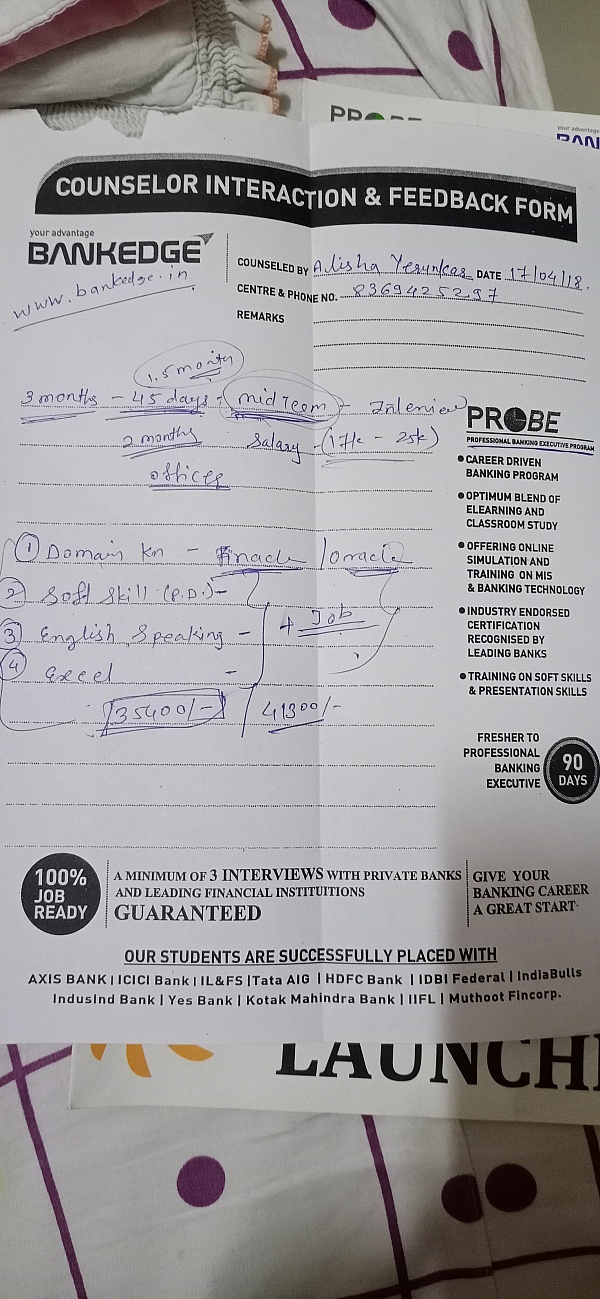 PR
your advantage
BAN
COUNSELOR INTERACTION & FEEDBACK FORM
your advantage
BANKEDGE
www.bankedge.in
COUNSELED BY Adisha DATE 17/04/18.
CENTRE & PHONE NO. 8369425297
REMARKS
1.5 month
3 months - 45 days - mid team - Interview
2 months Salary - (17k - 25k)
offices
PROBE
PROFESSIONAL BANKING EXECUTIVE PROGRAM
CAREER DRIVEN
BANKING PROGRAM
OPTIMUM BLEND OF
ELEARNING AND
CLASSROOM STUDY
OFFERING ONLINE
SIMULATION AND
TRAINING ON MIS
& BANKING TECHNOLOGY
INDUSTRY ENDORSED
CERTIFICATION
RECOGNISED BY
LEADING BANKS
TRAINING ON SOFT SKILLS
& PRESENTATION SKILLS
1 Domain kn - Finacle / oracle
2 Soft Skill (P.D.) -
3 English Speaking - + Job
4 Excel -
35400/- 41300/-
FRESHER TO
PROFESSIONAL
BANKING
EXECUTIVE
90
DAYS
100%
JOB
READY
A MINIMUM OF 3 INTERVIEWS WITH PRIVATE BANKS
AND LEADING FINANCIAL INSTITUITIONS
GUARANTEED
GIVE YOUR
BANKING CAREER
A GREAT START
OUR STUDENTS ARE SUCCESSFULLY PLACED WITH
AXIS BANK | ICICI Bank | IL&FS | Tata AIG | HDFC Bank | IDBI Federal | IndiaBulls
IndusInd Bank | Yes Bank | Kotak Mahindra Bank | IIFL | Muthoot Fincorp.
LAUNCH